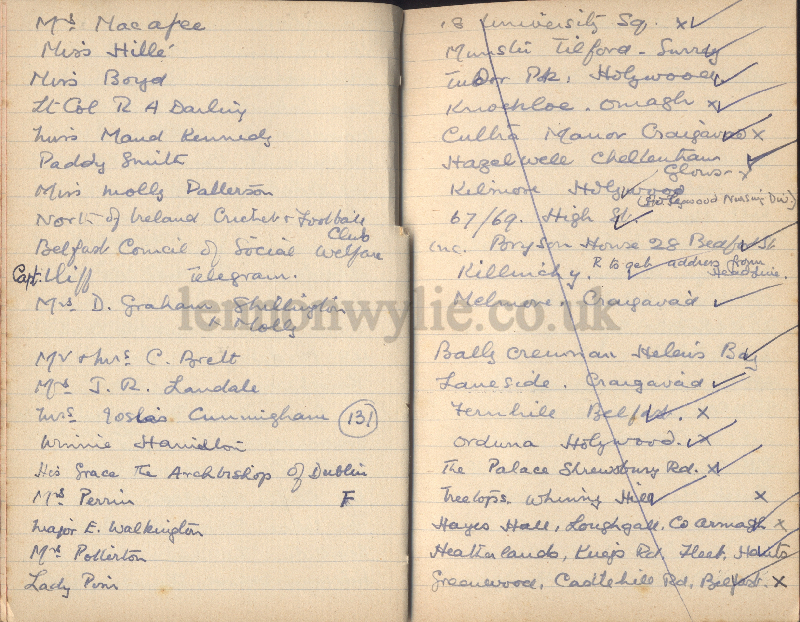 Mrs Macafee
Miss Hillé
Miss Boyd
Lt Col R A Darling
Miss Maud Kennedy
Paddy Smith
Miss Molly Patterson
North of Ireland Cricket & Football
Club
Belfast Council of Social Welfare
Capt. Iliff Telegram.
Mrs D. Graham Shillington
& Molly
Mr & Mrs C. Brett
Mrs J. R. Landale
Mrs Josias Cunningham (131)
Winnie Hamilton
His Grace The Archbishop of Dublin
Mrs Perrin F
Major E. Walkington
Mrs Pollerton
Lady Pim
18 University Sq. x
Tilford - Surrey
Tudor Pk, Holywood
Knockloe. Omagh x
Cultra Manor Craigavad x
Hazelwell Cheltenham
Glows. x
Kilmore Holywood
(Holywood Nursing Div.)
67/69. High St.
Inc. Bryson House 28 Bedford St
Killinchy. R to get address from
Headline.
Kelmore, Craigavad
Ballycrewnan Helen's Bay
Laneside. Craigavad
Fernhill Belfast. x
Orduna Holywood. x
The Palace Shrewsbury Rd. x
Treetops. Whinny Hill x
Hayes Hall, Loughgall, Co Armagh x
Heatherlands, Kings Rd, Fleet, Hants
Greenwood, Castlehill Rd, Belfast. x
lennonwylie.co.uk